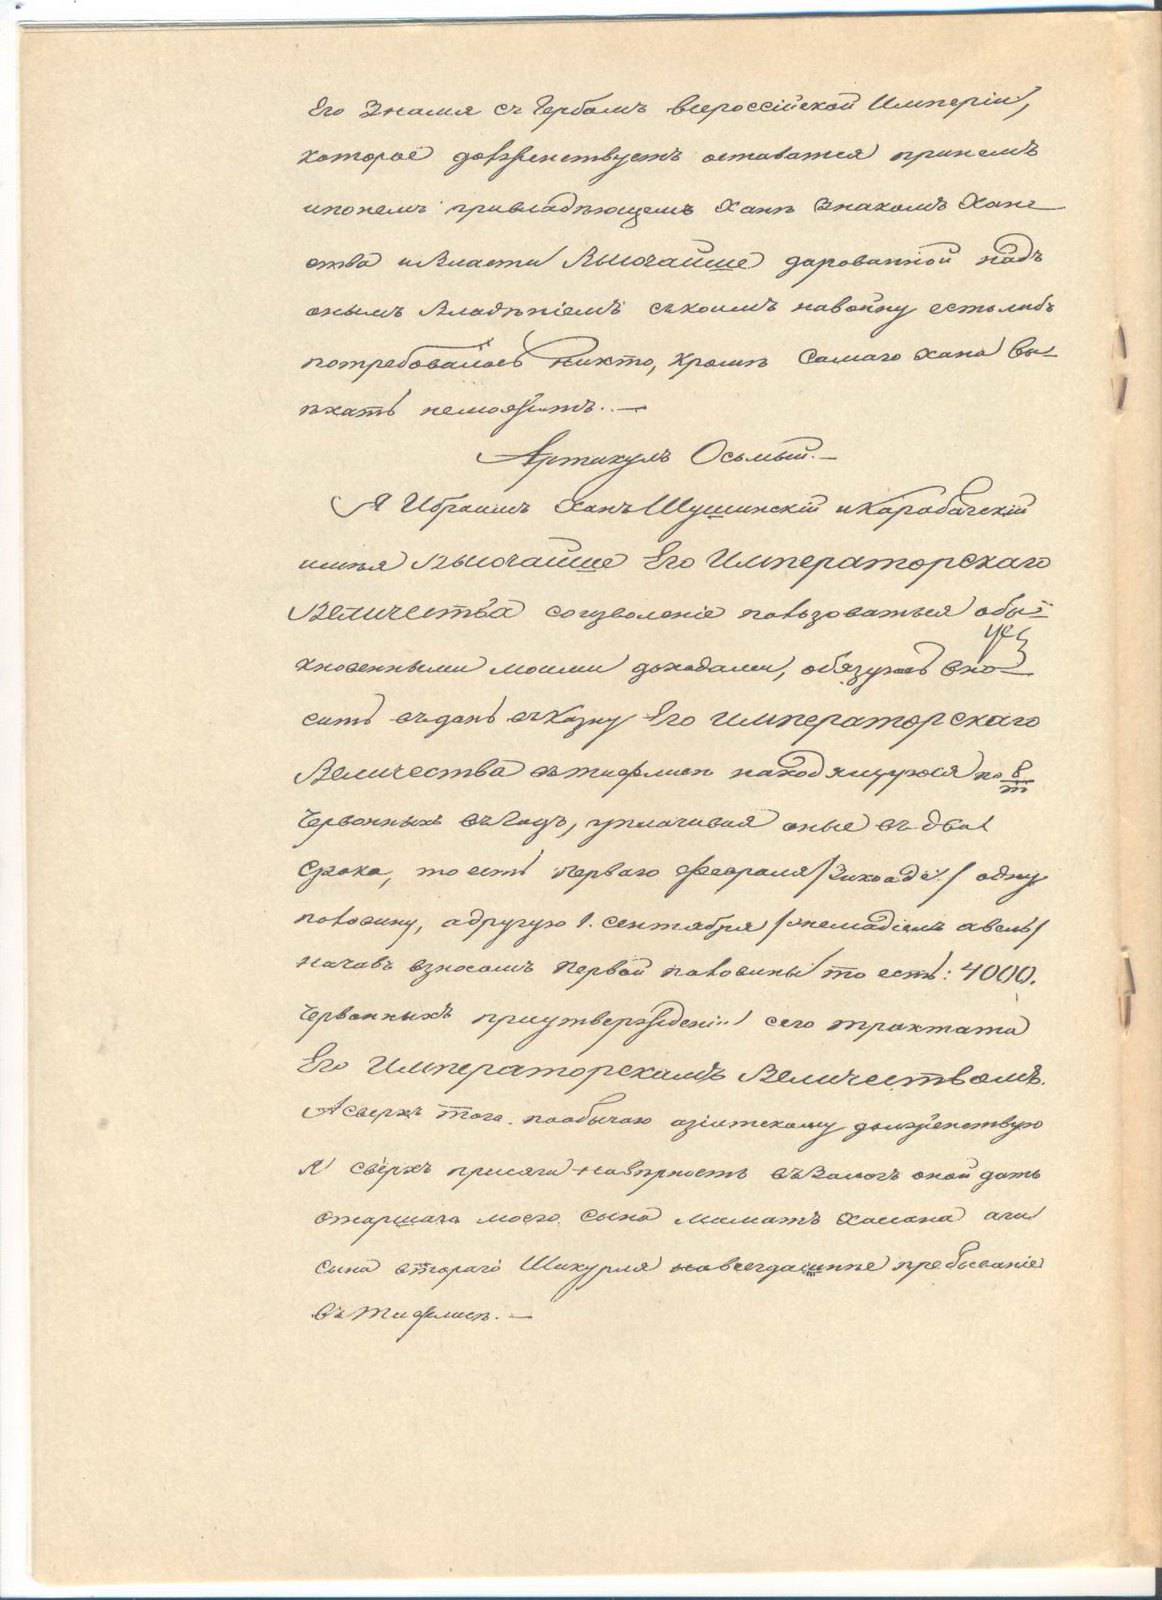 Его Знамя съ Гербомъ Всероссійской Имперіи,
которое долженствуетъ оставатся принемъ
ипонемъ привладѣющемъ Ханѣ Знакомъ Хан-
ства иВласти Высочайше дарованной надъ
онымъ Владѣніемъ съкоимъ навойну естьлибъ
потребовалось Никто, Кромѣ Самаго хана вы-
ѣхать неможетъ. —
Артикулъ Осьмый. —
Я Ибраимъ Ханъ Шушинскій иКарабагскій
имѣя Высочайше Его Императорскаго
Величества соизволеніе пользоваться обы-
кновенными моими доходами, обязуюсь вно-
сить въдань въКазну Его Императорскаго
Величества вътифлисѣ находящуюся по 8/т
Червонныхъ въГодъ, уплачивая оные въ два
Срока, то есть Перваго февраля /Зикаадe/ одну
половину, адругую 1. сентября / авель/
Начавъ взносомъ Первой половины то есть: 4000.
Червонныхъ приутвержденіи сего трактата
Его Императорскимъ Величествомъ.
Асверхъ того пообычаю азіатскому долженствую
я сверхъ присяги навѣрность въЗалогъ оной дать
старшаго моего сына Маматъ Хасана аги
сына втораго Шикурла навсегдашнѣе пребываніе
въ тифлисѣ. —